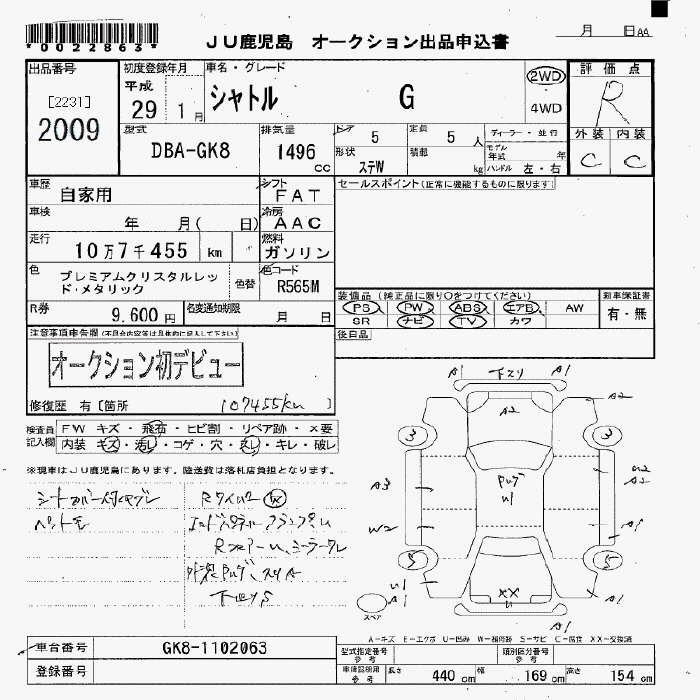 *0022863*
JU鹿児島 オークション出品申込書
月 日 AA
出品番号
[2231]
2009
初度登録年月
平成
29 1 月
車名・グレード
シャトル G
2WD
4WD
評価点
R
外装 内装
C C
型式
DBA-GK8
排気量
1496 cc
ドア 5
定員 5 人
形状 ステW
積載 kg
ディーラー・並行
モデル年式 年
ハンドル 左・右
車歴
自家用
シフト
FAT
セールスポイント(正常に機能するものに限ります)
車検
年 月( 日)
冷房
AAC
走行
10万7千455 km
燃料
ガソリン
色
プレミアムクリスタルレッド・メタリック
色替
色コード
R565M
R券
9,600円
名変通知期限
月 日
装備品(純正品に限り○をつけてください)
PS PW ABS エアB AW
SR ナビ TV カワ
新車保証書
有・無
後日品
注意事項申告欄(不具合内容等は具体的に記入して下さい)
オークション初デビュー
修復歴 有〔箇所 107455km 〕
検査員記入欄
FW キズ・飛石・ヒビ割・リペア跡・×要
内装 キズ・汚レ・コゲ・穴・スレ・キレ・破レ
※現車はJU鹿児島にあります。陸送費は落札店負担となります。
A1 下スリ A1
A2 A2
3 3
A3
W2
A1
U1
A1
XX
U
スペア
A-キズ E-エクボ U-凹み W-補修跡 S-サビ C-腐食 XX-交換済
車台番号
GK8-1102063
登録番号
型式指定番号 参考
類別区分番号 参考
車検証明用 参考
長さ 440 cm
幅 169 cm
高さ 154 cm